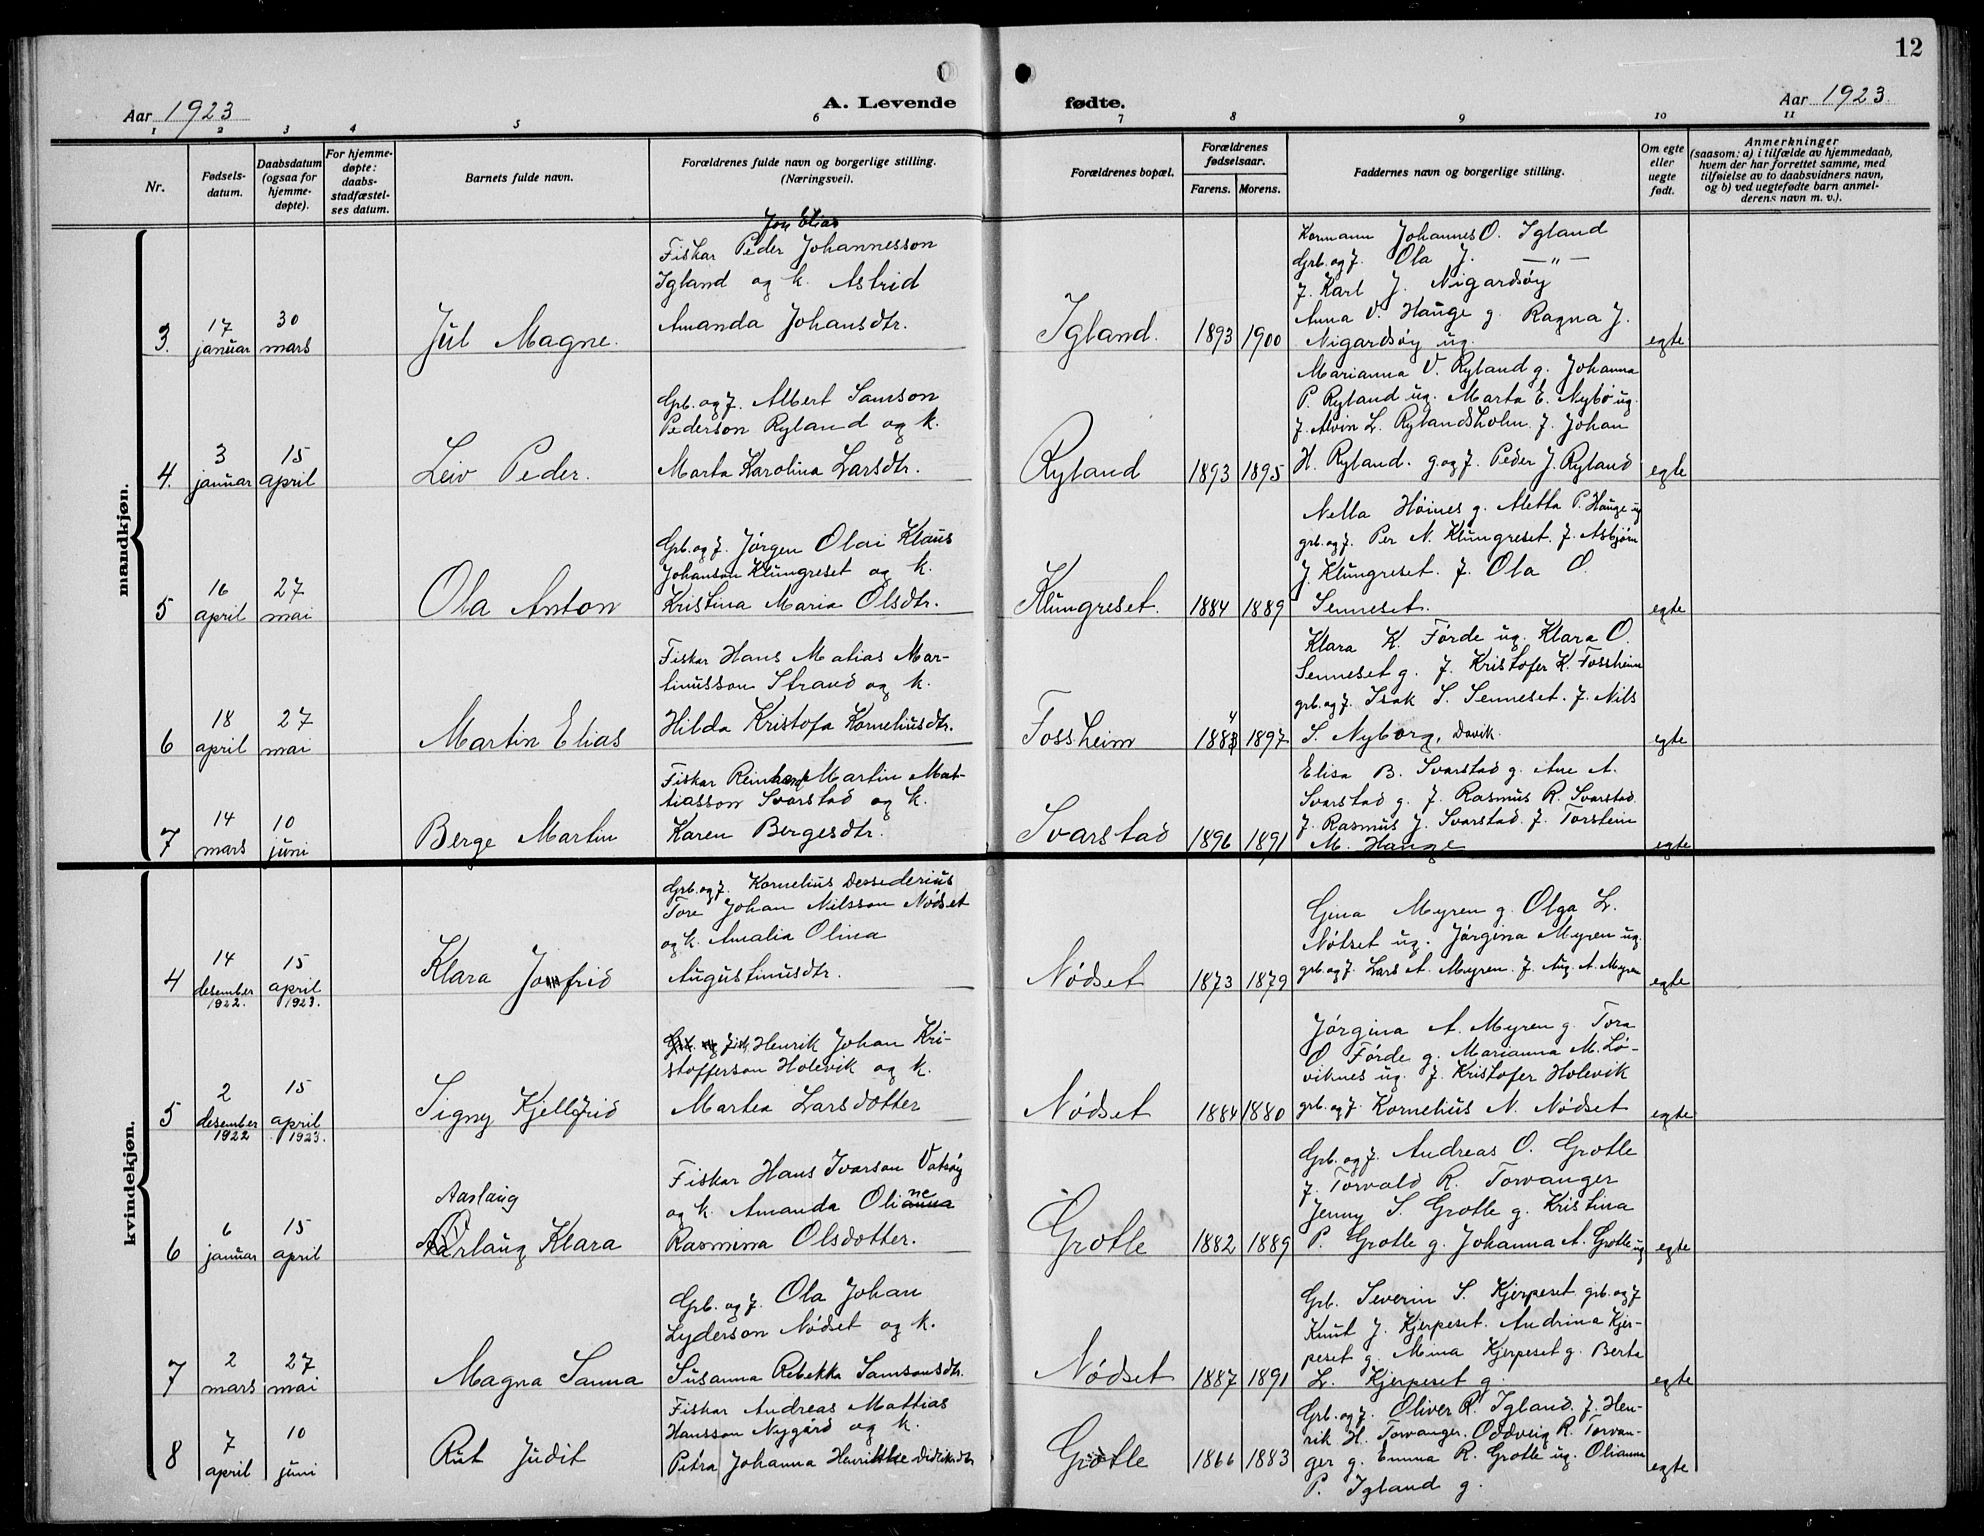 12
Aar 1923
A. Levende
fødte.
Aar 1923.
1 2 3 4 5 6 7 8 9 10 11
Nr.
Fødsels-
datum.
Daabsdatum
(ogsaa for
hjemme-
døpte).
For hjemme-
døpte:
daabs-
stadfæstel-
ses datum.
Barnets fulde navn.
Forældrenes fulde navn og borgerlige stilling.
(Næringsvei).
Forældrenes bopæl.
Forældrenes
fødselsaar.
Farens. Morens.
Faddernes navn og borgerlige stilling.
Om egte
eller
uegte
født.
Anmerkninger
(saasom: a) i tilfælde av hjemmedaab,
hvem der har forrettet samme, med
tilføielse av to daabsvidners navn,
og b) ved uegtefødte barn anmel-
derens navn m. v.).
mandkjøn.
3. 17 januar 30 mars
Jul Magne.
Jon Elias
Fiskar Peder Johannesson
Igland og k. Astrid
Amanda Johansdtr.
Igland. 1893 1900
Kormann Johannes O. Igland
Grb. og J. Ola J. —„—
J. Karl J. Nigardsøy
Anna V. Hauge g. Ragna J.
Nigardsøy ug.
egte
4. 3 januar 15 april
Leiv Peder.
Grb. og J. Albert Samson
Pederson Ryland og k.
Marta Karolina Larsdtr.
Ryland 1893 1895
Marianna V. Ryland g. Johanna
P. Ryland ug. Marta E. Nybø ug.
J. Alvin L. Rylandsholm. J. Johan
H. Ryland. g. og J. Peder J. Ryland
egte
5 16 april 27 mai
Ola Anton
Grb. og J. Jørgen Olai Klaus
Johanson Klungreset og k.
Kristina Maria Olsdtr.
Klungreset. 1884 1889
Nella Høines g. Aletta P. Hauge ug
grb. og J. Per N. Klungreset. J. Asbjørn
J. Klungreset. J. Ola O.
Senneset.
egte
6 18 april 27 mai
Martin Elias
Fiskar Hans Matias Mar-
tinusson Strand og k.
Hilda Kristofa Korneliusdtr.
Fossheim 1883 4 1897
Klara K. Førde ug. Klara O.
Senneset g. J. Kristofer K. Fossheim
grb. og J. Isak S. Senneset. J. Nils
S. Nyborg, Davik.
egte
7 14 mars 10 juni
Berge Martin
Fiskar Reinhard Martin Mat-
tiasson Svarstad og k.
Karen Bergesdtr.
Svarstad 1896 1891
Elisa B. Svarstad g. Ane A.
Svarstad g. J. Rasmus R. Svarstad.
J. Rasmus J. Svarstad. J. Torstein
M. Hauge
egte
kvindekjøn.
4 14 desember 1922. 15 april 1923.
Klara Jonfrid
Grb. og J. Kornelius Dessederius
Tore Johan Nilsson Nødset
og k. Amalia Olina
Augustinusdtr.
Nødset 1873 1879
Gina Myren g. Olga L.
Nøtset ug. Jørgina Myren ug.
grb. og J. Lars A. Myren. J. Aug. A. Myren
egte
5 2 desember 1922 15 april 1923.
Signy Kjellfrid
Grb. og J. Henrik Johan Kri-
stofferson Holevik og k.
Martea Larsdotter
Nødset 1884 1880
Jørgina A. Myren g. Tora
O. Førde g. Marianna M. Lø-
viknes ug. J. Kristofer Holevik
grb. og J. Kornelius N. Nødset
egte
6 6 januar 15 april
Aaslaug
Klara
Fiskar Hans Ivarson Vatsøy
og k. Amanda Olianna ne
Rasmina Olsdotter.
Grotle 1882 1889
Grb. og J. Andreas O. Grotle
J. Torvald R. Torvanger
Jenny S. Grotle g. Kristina
P. Grotle g. Johanna A. Grotle ug
egte
7 2 mars 27 mai
Magna Sanna
Grb. og J. Ola Johan
Lyderson Nødset og k.
Susanna Rebekka Samsonsdtr.
Nødset 1887 1891
Grb. Severin S. Kjerpeset grb. og J
Knut J. Kjerpeset. Andrina Kjer-
peset g. Mina Kjerpeset g. Berta
L. Kjerpeset g.
egte
8 7 april 10 juni
Rut Judit
Fiskar Andreas Mattias
Hansson Nygård og k.
Petra Johanna Henrikke Didriksdtr
Grotle 1866 1883
Grb. og J. Oliver R. Igland. J. Hen-
rik H. Torvanger. Oddveig R. Torvan-
ger g. Emma R. Grotle ug. Olianna
P. Igland g.
egte